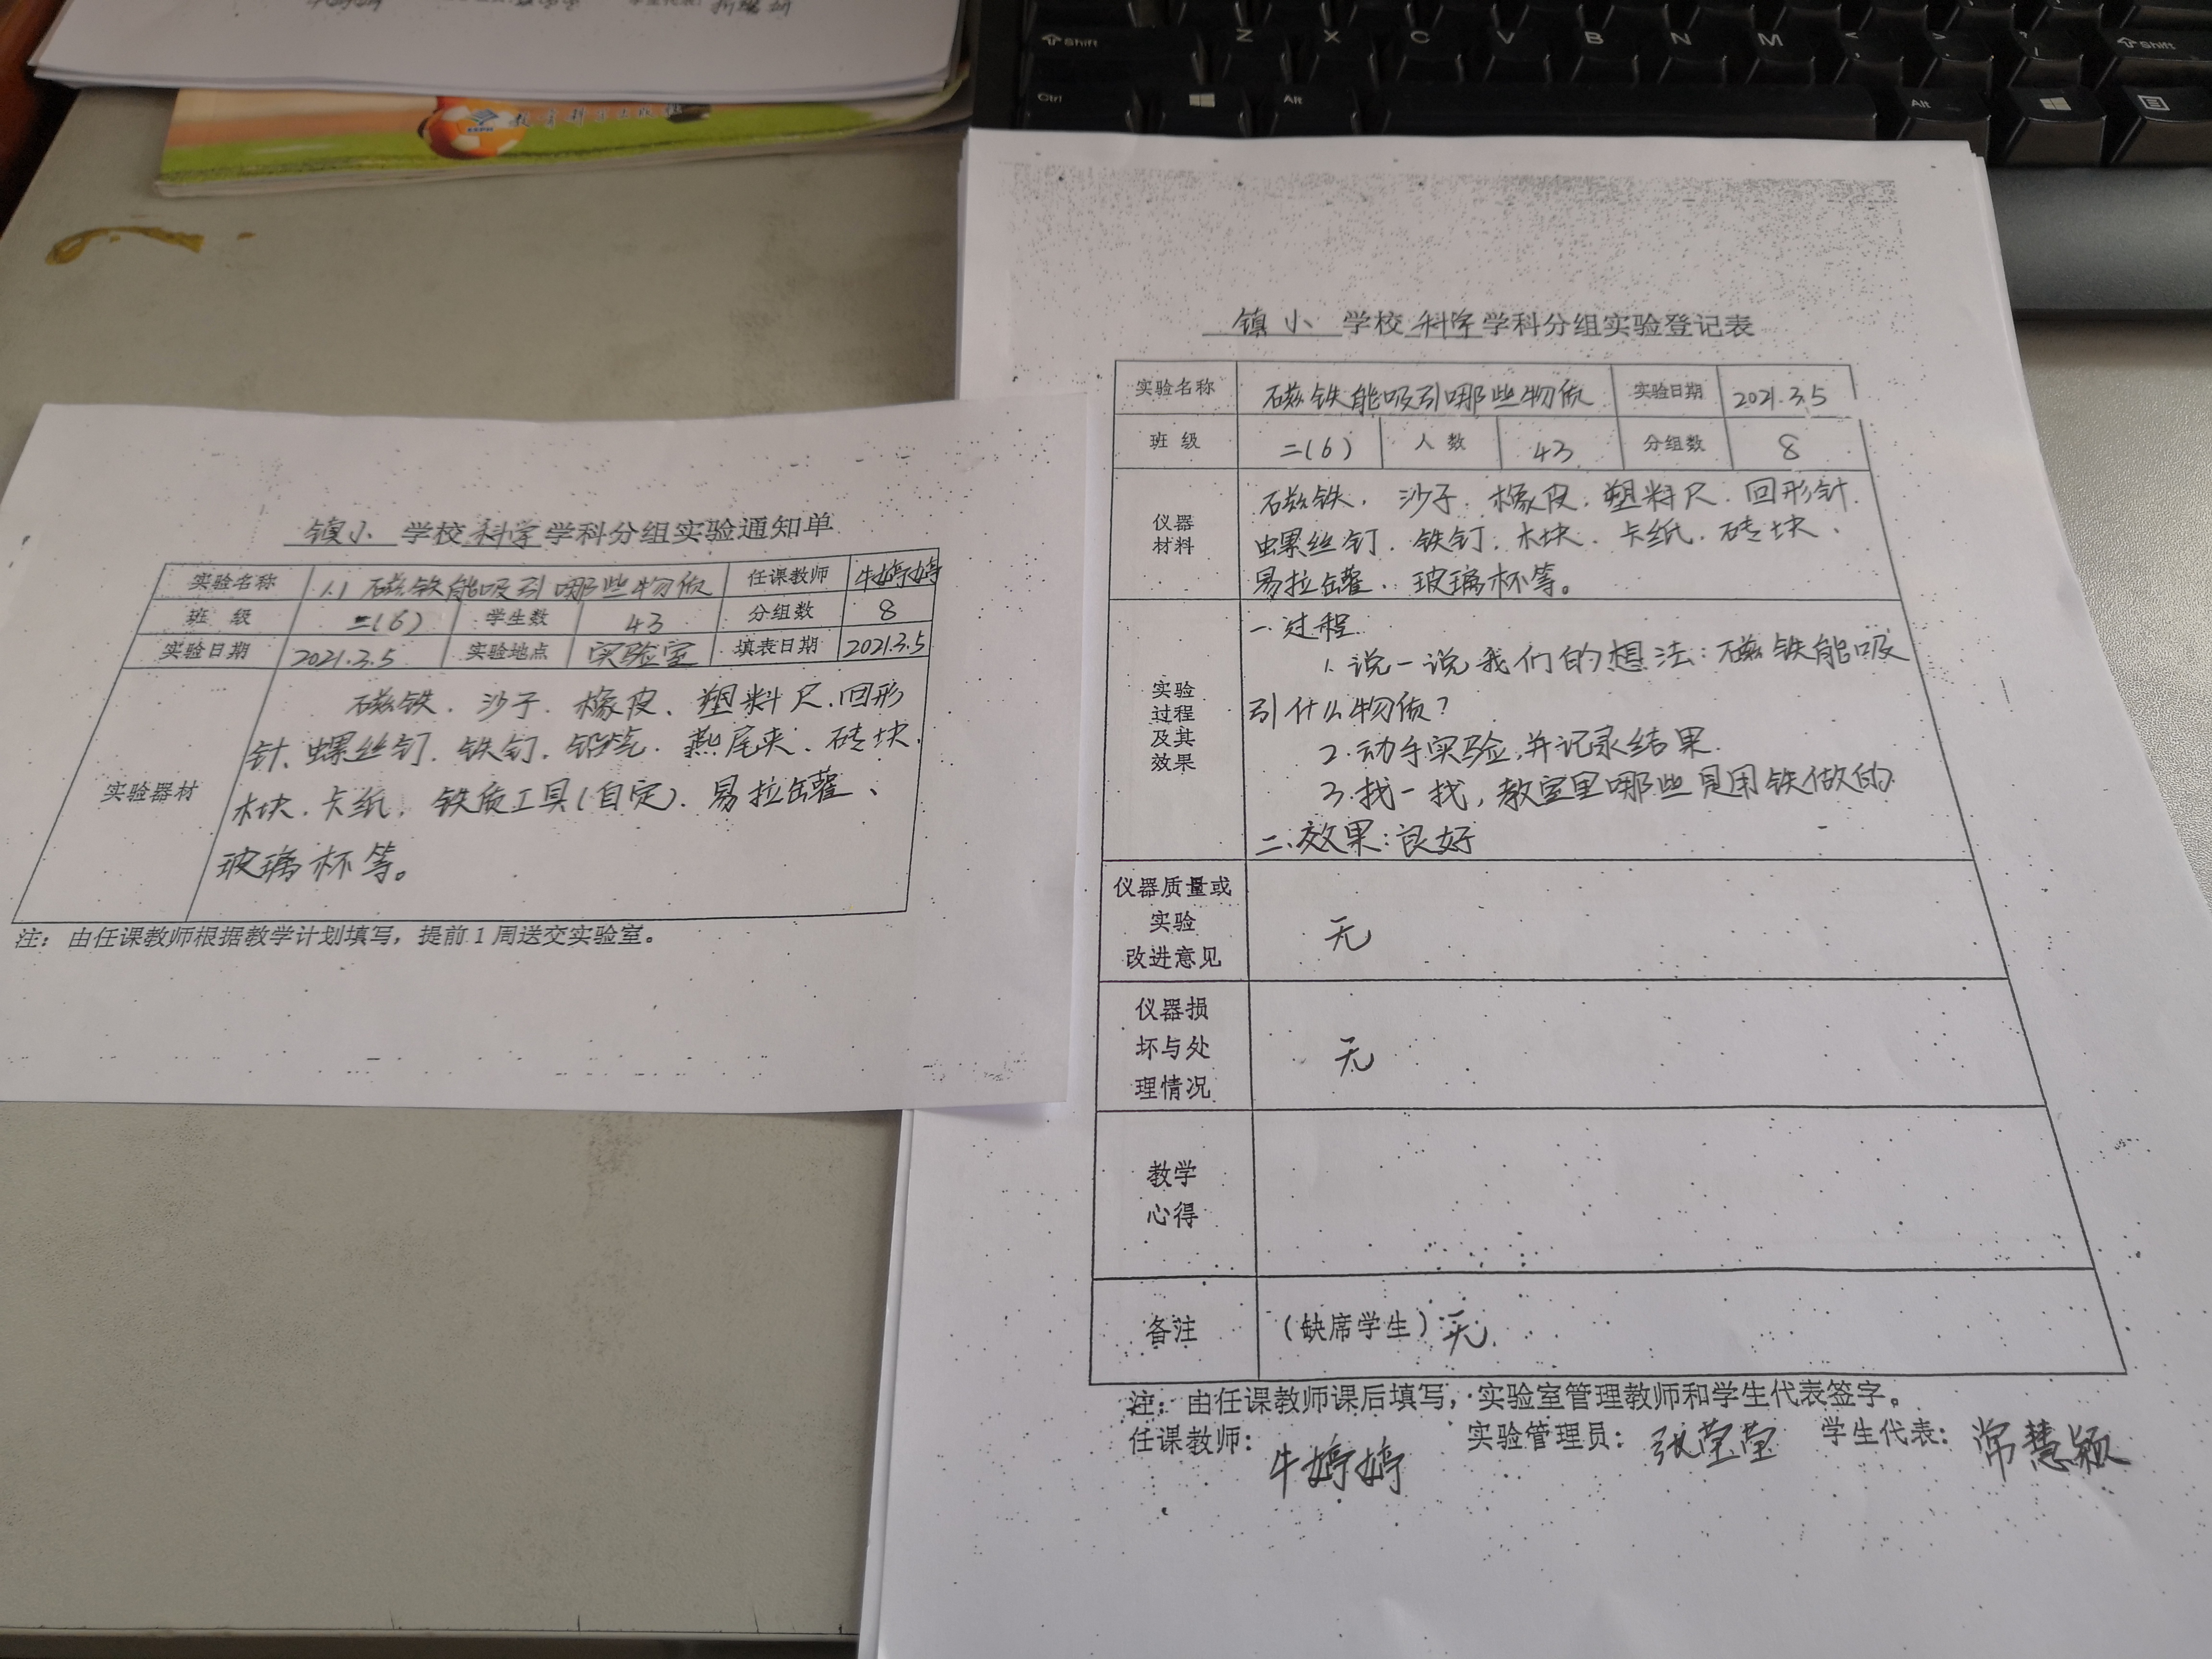 教育科学出版社
Shift
Z
X
C
V
B
N
M
Shift
Ctrl
Alt
Alt
镇小 学校 科学 学科分组实验通知单
实验名称 1.1 磁铁能吸引哪些物质 任课教师 牛婷婷
班 级 二(6) 学生数 43 分组数 8
实验日期 2021.3.5 实验地点 实验室 填表日期 2021.3.5
实验器材
磁铁、沙子、橡皮、塑料尺、回形
针、螺丝钉、铁钉、铅笔、燕尾夹、砖块、
木块、卡纸、铁质工具(自定)、易拉罐、
玻璃杯等。
注：由任课教师根据教学计划填写，提前1周送交实验室。
镇小 学校 科学 学科分组实验登记表
实验名称 磁铁能吸引哪些物质 实验日期 2021.3.5
班 级 二(6) 人 数 43 分组数 8
仪器
材料
磁铁、沙子、橡皮、塑料尺、回形针、
螺丝钉、铁钉、木块、卡纸、砖块、
易拉罐、玻璃杯等。
实验
过程
及其
效果
一.过程
1.说一说我们的想法：磁铁能吸
引什么物质？
2.动手实验,并记录结果.
3.找一找,教室里哪些是用铁做的
二.效果：良好
仪器质量或
实验
改进意见
无
仪器损
坏与处
理情况
无
教学
心得
备注 (缺席学生) 无
注：由任课教师课后填写，实验室管理教师和学生代表签字。
任课教师： 牛婷婷 实验管理员： 张莹莹 学生代表： 常慧颖